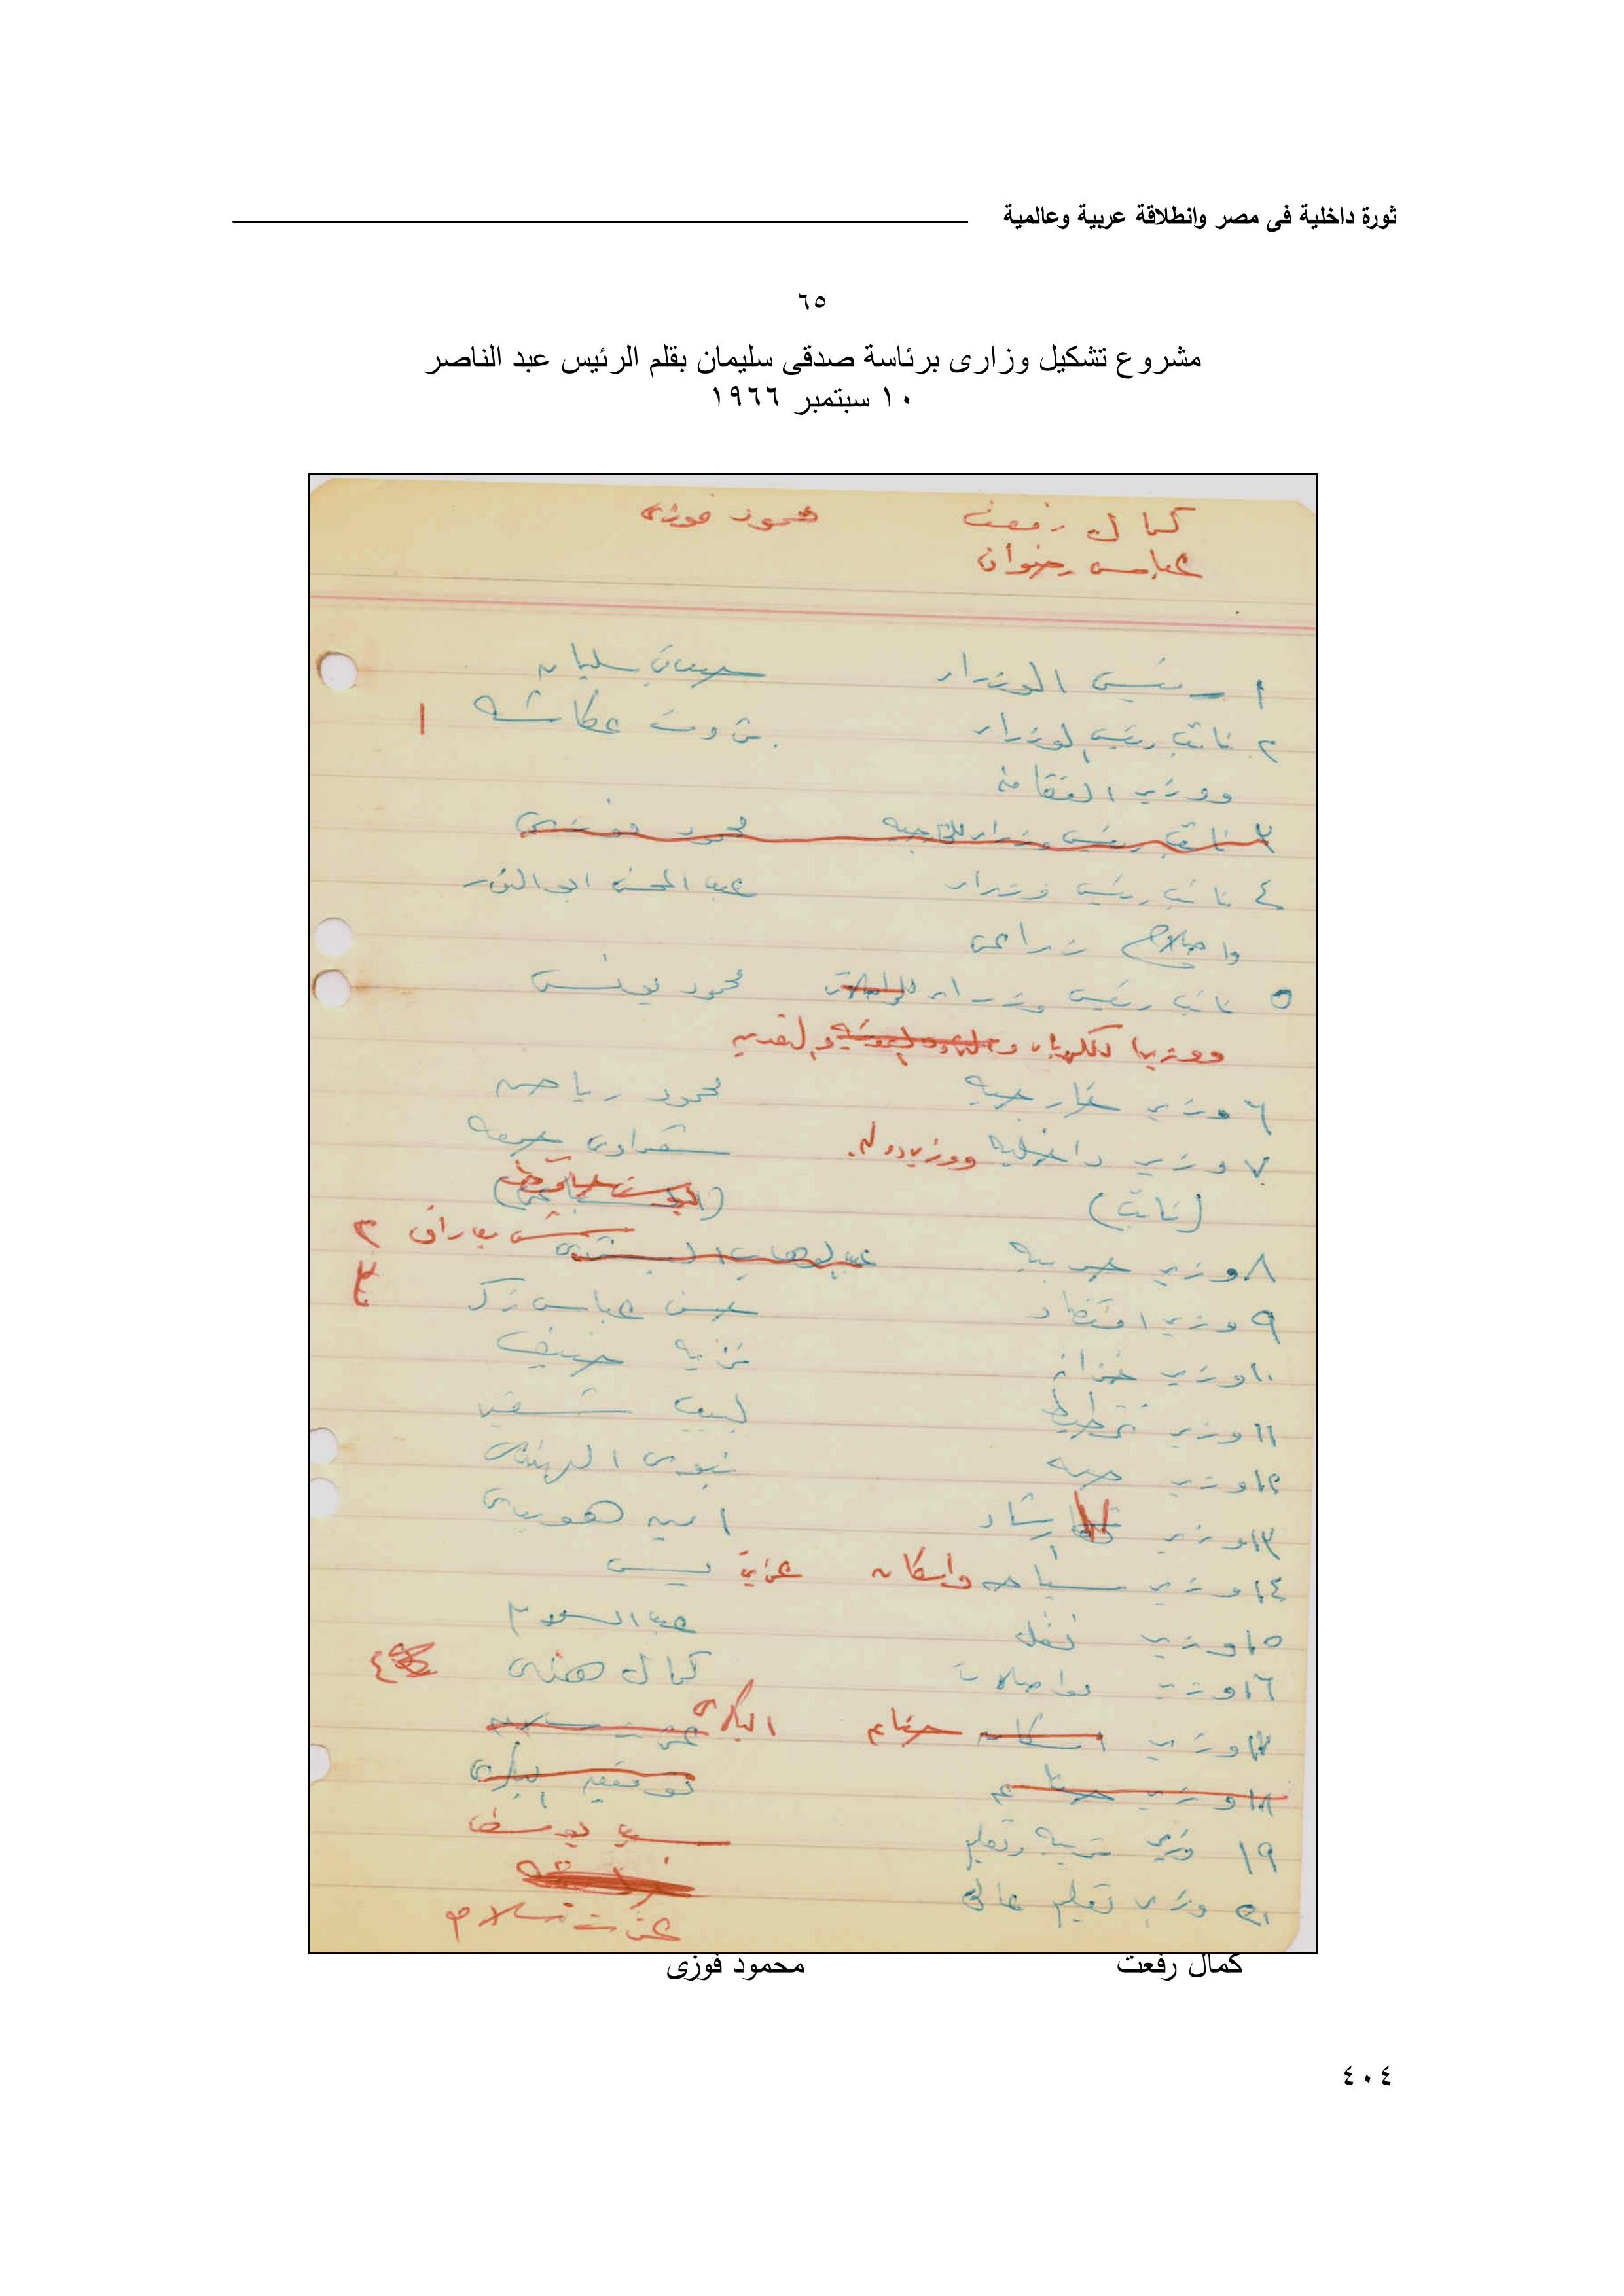 ثورة داخلية فى مصر وانطلاقة عربية وعالمية
٦٥
مشروع تشكيل وزارى برئاسة صدقى سليمان بقلم الرئيس عبد الناصر
١٠ سبتمبر ١٩٦٦
كمال رفعت محمود فوزى
عباس رضوان
١ رئيس الوزراء صدقى سليمان
٢ نائب رئيس الوزراء ثروت عكاشه ١
ووزير الثقافه
٣ نائب رئيس وزراء للخارجيه محمود فوزى
٤ نائب رئيس وزراء عبد المحسن ابو النور
واصلاح زراعى
٥ نائب رئيس وزراء للمواصلات محمود يونس
ووزيرا للكهرباء
٦ وزير خارجيه محمود رياض
٧ وزير داخليه ووزير دوله شعراوى جمعه
(نائب)
٨ وزير حربيه عبد الوهاب البشرى شمس بدران ٢
٩ وزير اقتصاد حسن عباس زكى ٣
١٠ وزير خزانه نزيه ضيف
١١ وزير تخطيط لبيب شقير
١٢ وزير صحه نبوى المهندس
١٣ وزير ارشاد امين هويدى
١٤ وزير سياحه واسكان عزيز يس
١٥ وزير نقل
١٦ وزير مواصلات كمال هنرى ٤
١٧ وزير اسكان عزت سلامه البكرى
١٨ وزير توفيق البكرى
١٩ وزير تربيه وتعليم سيد يوسف
٢٠ وزير تعليم عالى
عزت سلامه
كمال رفعت محمود فوزى
٤٠٤